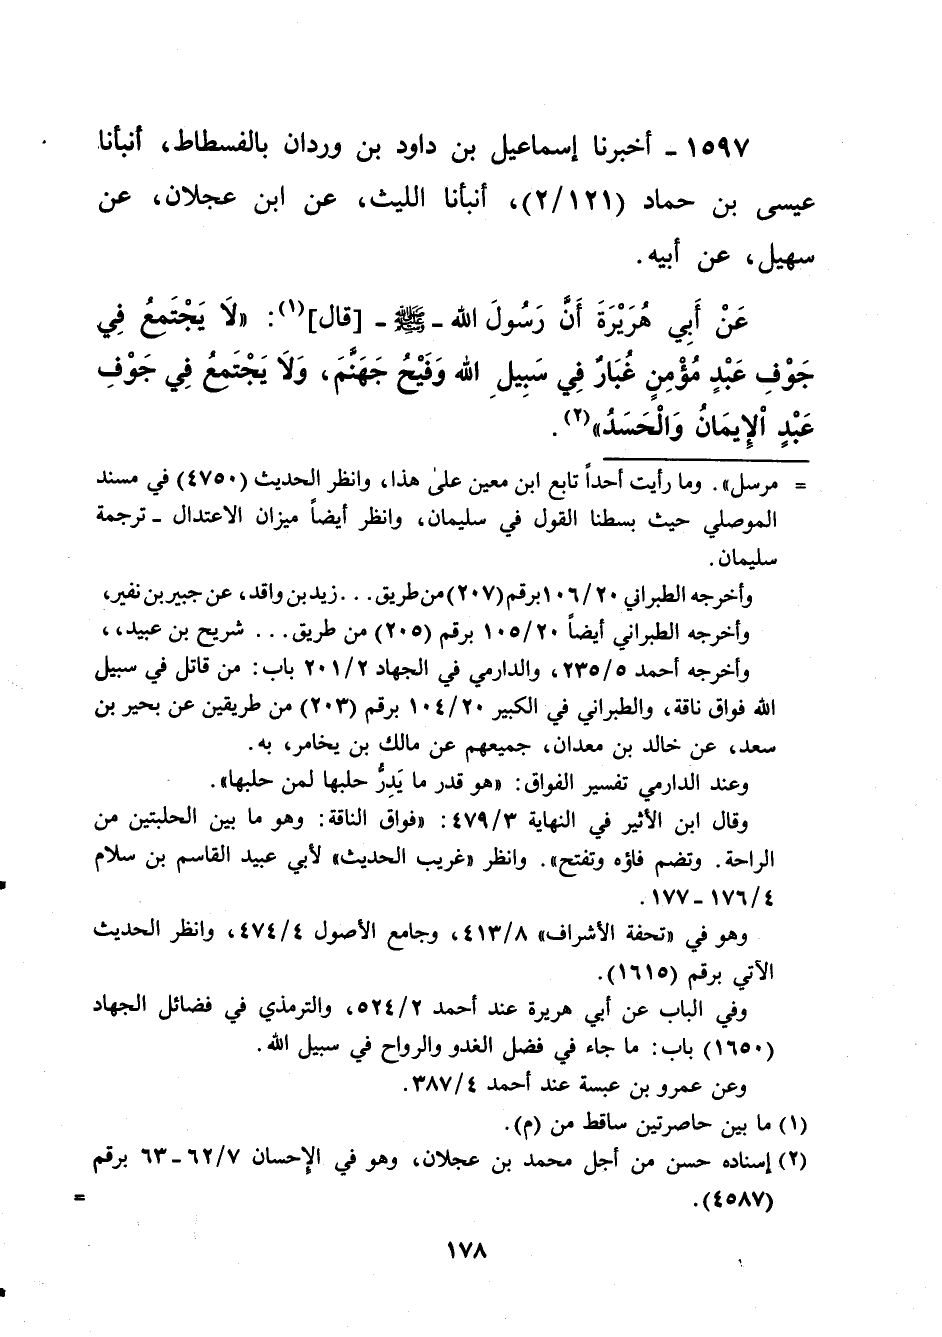 ١٥٩٧ - أخبرنا إسماعيل بن داود بن وردان بالفسطاط، أنبأنا
عيسى بن حماد (٢/١٢١)، أنبأنا الليث، عن ابن عجلان، عن
سهيل، عن أبيه.
عَنْ أَبِي هُرَيْرَةَ أَنَّ رَسُولَ الله - ﷺ - [قال](١): «لَا يَجْتَمعُ فِي
جَوْفِ عَبْدٍ مُؤْمِنٍ غُبَارٌ فِي سَبِيلِ الله وَفَيْحُ جَهَنَّمَ، وَلَا يَجْتَمعُ فِي جَوْفِ
عَبْدٍ الْإِيمَانُ وَالْحَسَدُ»(٢).
= مرسل». وما رأيت أحداً تابع ابن معين على هذا، وانظر الحديث (٤٧٥٠) في مسند
الموصلي حيث بسطنا القول في سليمان، وانظر أيضاً ميزان الاعتدال - ترجمة
سليمان.
وأخرجه الطبراني ١٠٦/٢٠ برقم (٢٠٧) من طريق... زيد بن واقد، عن جبير بن نفير،
وأخرجه الطبراني أيضاً ١٠٥/٢٠ برقم (٢٠٥) من طريق... شريح بن عبيد،،
وأخرجه أحمد ٢٣٥/٥، والدارمي في الجهاد ٢٠١/٢ باب: من قاتل في سبيل
الله فواق ناقة، والطبراني في الكبير ١٠٤/٢٠ برقم (٢٠٣) من طريقين عن بحير بن
سعد، عن خالد بن معدان، جميعهم عن مالك بن يخامر، به.
وعند الدارمي تفسير الفواق: «هو قدر ما يَدِرُّ حلبها لمن حلبها».
وقال ابن الأثير في النهاية ٤٧٩/٣: «فواق الناقة: وهو ما بين الحلبتين من
الراحة. وتضم فاؤه وتفتح». وانظر «غريب الحديث» لأبي عبيد القاسم بن سلام
١٧٦/٤ - ١٧٧.
وهو في «تحفة الأشراف» ٤١٣/٨، وجامع الأصول ٤٧٤/٤، وانظر الحديث
الآتي برقم (١٦١٥).
وفي الباب عن أبي هريرة عند أحمد ٥٢٤/٢، والترمذي في فضائل الجهاد
(١٦٥٠) باب: ما جاء في فضل الغدو والرواح في سبيل الله.
وعن عمرو بن عبسة عند أحمد ٣٨٧/٤.
(١) ما بين حاصرتين ساقط من (م).
(٢) إسناده حسن من أجل محمد بن عجلان، وهو في الإحسان ٦٢/٧ - ٦٣ برقم
(٤٥٨٧). =
١٧٨